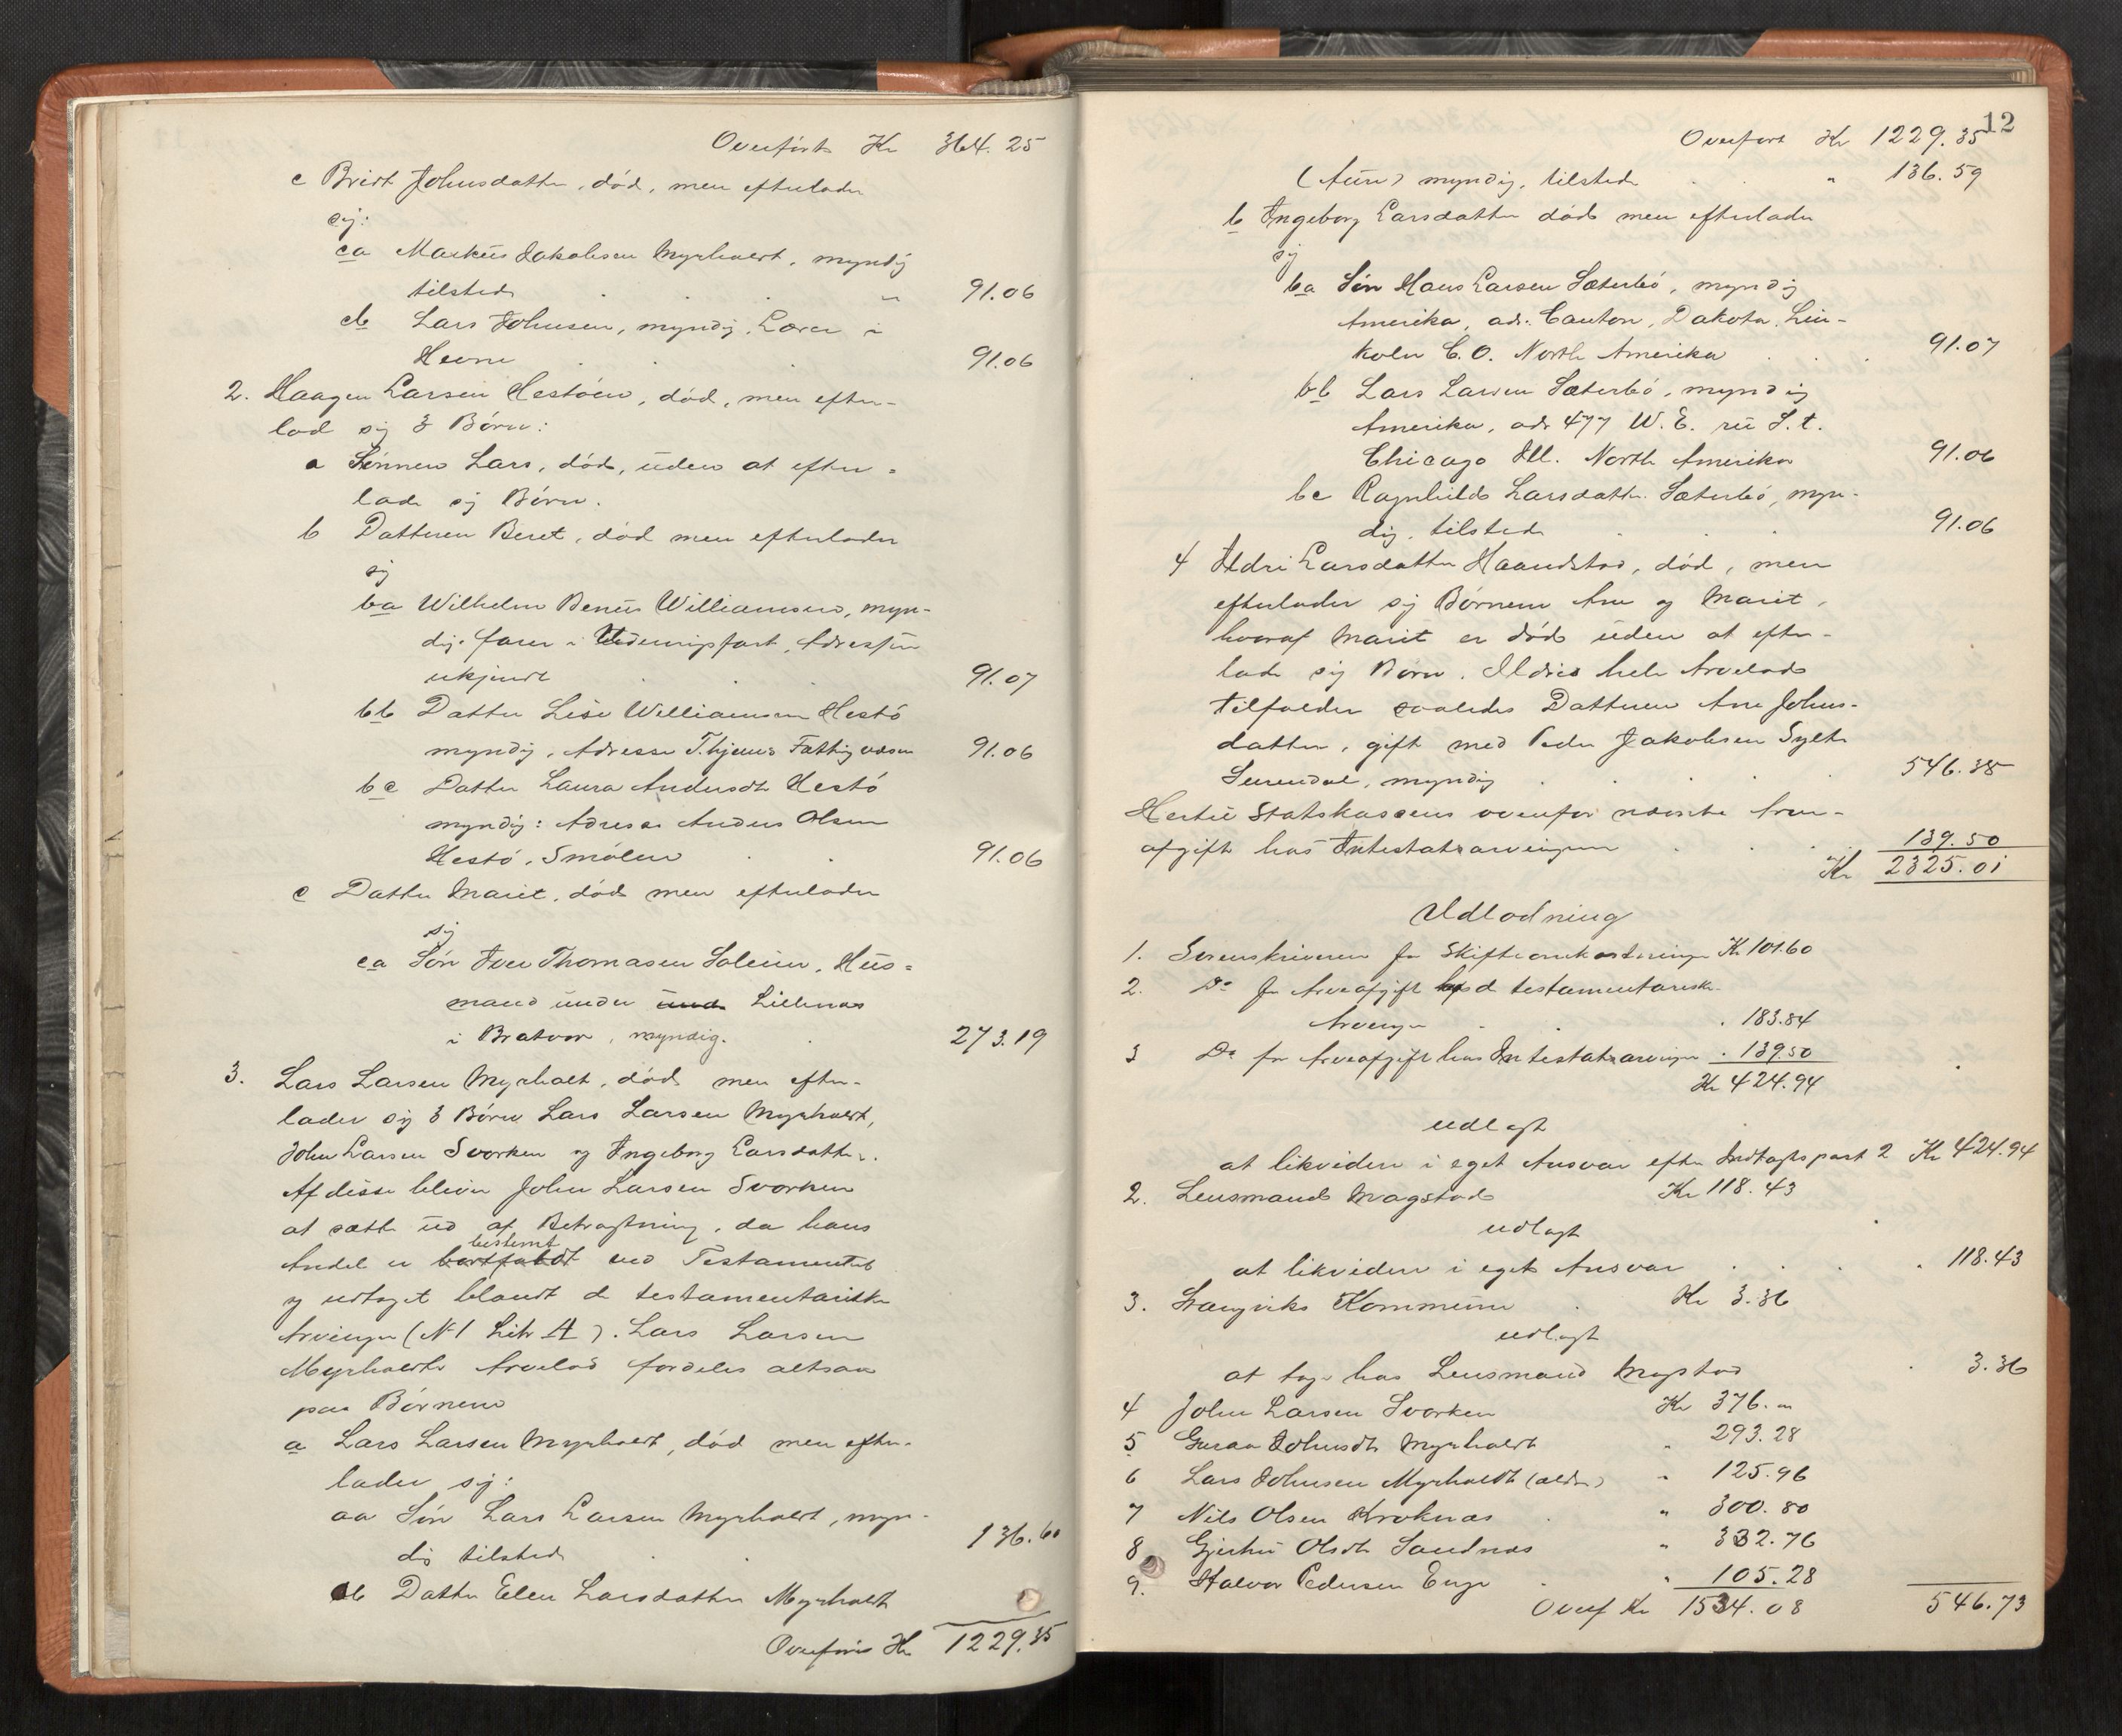 Overført Kr 364.25
c Bridt Johnsdatter, død, men efterlader
sig:
ca Markus Jakobsen Myrholdt, myndig
tilstede " 91.06
cb Lars Johnsen, myndig, Lærer i
Hevne 91.06
2. Haagen Larsen Hestøen, død, men efter-
lod sig 3 Børn:
a Sønnen Lars, død, uden at efter-
lade sig Børn.
b Datteren Beret, død men efterlader
sig
ba Wilhelm Benus Williamsen, myn-
dig. farer i Udenrigsfart, Adressen
ukjendt 91.07
bb Datter Lise Williamsen Hestø
myndig, Adresse T.hjems Fattigvæsen 91.06
bc Datter Laura Andersdt Hestø
myndig: Adresse Anders Olsen
Hestø, Smølen 91.06
c Datter Marit, død men efterlader
sig
ca Søn Iver Thomasen Soleim, Hus-
mand under und Lillenes
i Bratvær, myndig. 273.19
3. Lars Larsen Myrholt, død men efter-
lader sig 3 Børn Lars Larsen Myrholdt,
John Larsen Svorken og Ingeborg Larsdatter.
Af disse bliver John Larsen Svorken
at sætte ud af Betragtning, da hans
bestemt
Andel er bortfaldt ved Testamentet
og udtaget blandt de testamentariske
Arvinger (N 1 Litr A). Lars Larsen
Myrholdts Arvelod fordeles altsaa
paa Børnene
a Lars Larsen Myrholdt, død men efter-
lader sig:
aa Søn Lars Larsen Myrholdt, myn-
dig tilstede 136.60
ab Datter Elen Larsdatter Myrholdt
Overføres Kr 1229.35
12
Overført Kr 1229.35
(Aure) myndig, tilstede " 136.59
b Ingeborg Larsdatter død men efterlader
sig
ba Søn Hans Larsen Sæterbø, myndig
Amerika, adr. Canton, Dakota, Lin-
koln C.O. North Amerika 91.07
bb Lars Larsen Sæterbø, myndig
Amerika, adr 477 W. E. S.t.
Chicago Ill. North Amerika 91.06
bc Ragnhild Larsdatter Sæterbø, myn-
dig, tilstede 91.06
4 Ildri Larsdatter Haandstad, død, men
efterlader sig Børnene Ane og Marit,
hvoraf Marit er død uden at efter-
lade sig Børn. Ildris hele Arvelod
tilfalder saaledes Datteren Ane Johns-
datter, gift med Peder Jakobsen Sylte
Surendal, myndig 546.38
Hertil Statskassens ovenfor nævnte Arve-
afgift hos Intestatsarvingerne 139.50
Kr 2325.01
Udlodning
1. Sorenskriveren for Skifteomkostninger Kr 101.60
2. Do for Arveafgift hos d testamentarisk
Arvinger . 183.84
3 Do for Arveafgift hos Intestatsarvinger . 139.50
Kr 424.94
udlagt
at likvidere i eget Ansvar efter Indtægtspost 2 Kr 424.94
2. Lensmand Magstad Kr 118.43
udlagt
at likvidere i eget Ansvar . 118.43
3. Stangviks Kommune Kr 3.36
udlagt
at tage hos Lensmand Magstad . 3.36
4 John Larsen Svorken Kr 376. "
5 Guraa Johnsdt Myrholdt " 293.28
6 Lars Johnsen Myrholdt (ældre) " 125.96
7 Nils Olsen Kroknæs " 300.80
8 Gjertru Olsdt Sandnæs " 332.76
9. Halvor Pedersen Enge " 105.28
Overf Kr 1534.08 546.73